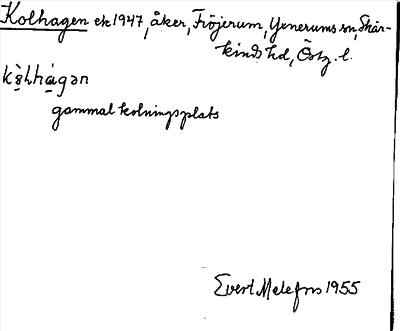 Kolhagen ek 1947, åker, Fröjerum, Yxnerums sn, Skär-
kinds hd, Östg. l.
kò̤lhá̤gən
gammal kolningsplats
Evert Melefors 1955